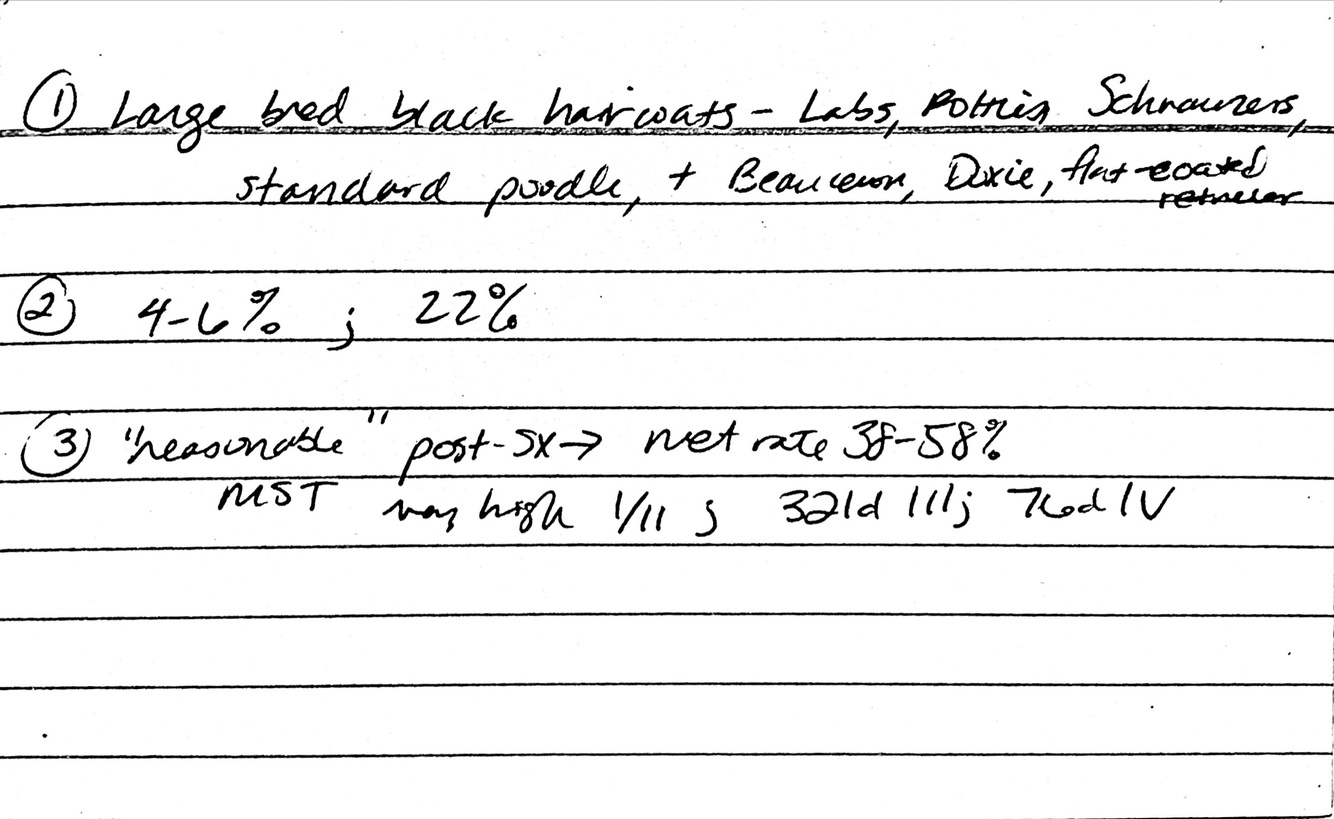 ① Large bred black haircoats - Labs, Rotties, Schnauzers,
standard poodle, + Beauceron, Doxie, flat-coated
retriever
② 4-6% ; 22%
③ "reasonable" post-sx → met rate 38-58%
MST very high I/II ; 321d III; 76d IV